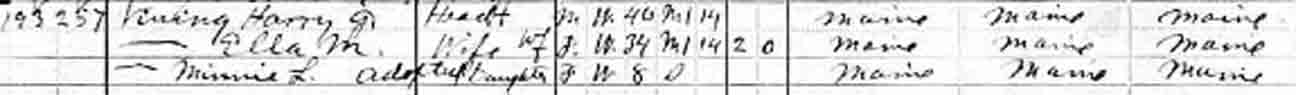 193 257 Harry G. Head M. W. 40 M1 14 Maine Maine Maine
— Ella M. Wife F. W. 34 M1 14 2 0 Maine Maine Maine
— Minnie L. adopted Daughter F W 8 S Maine Maine Maine